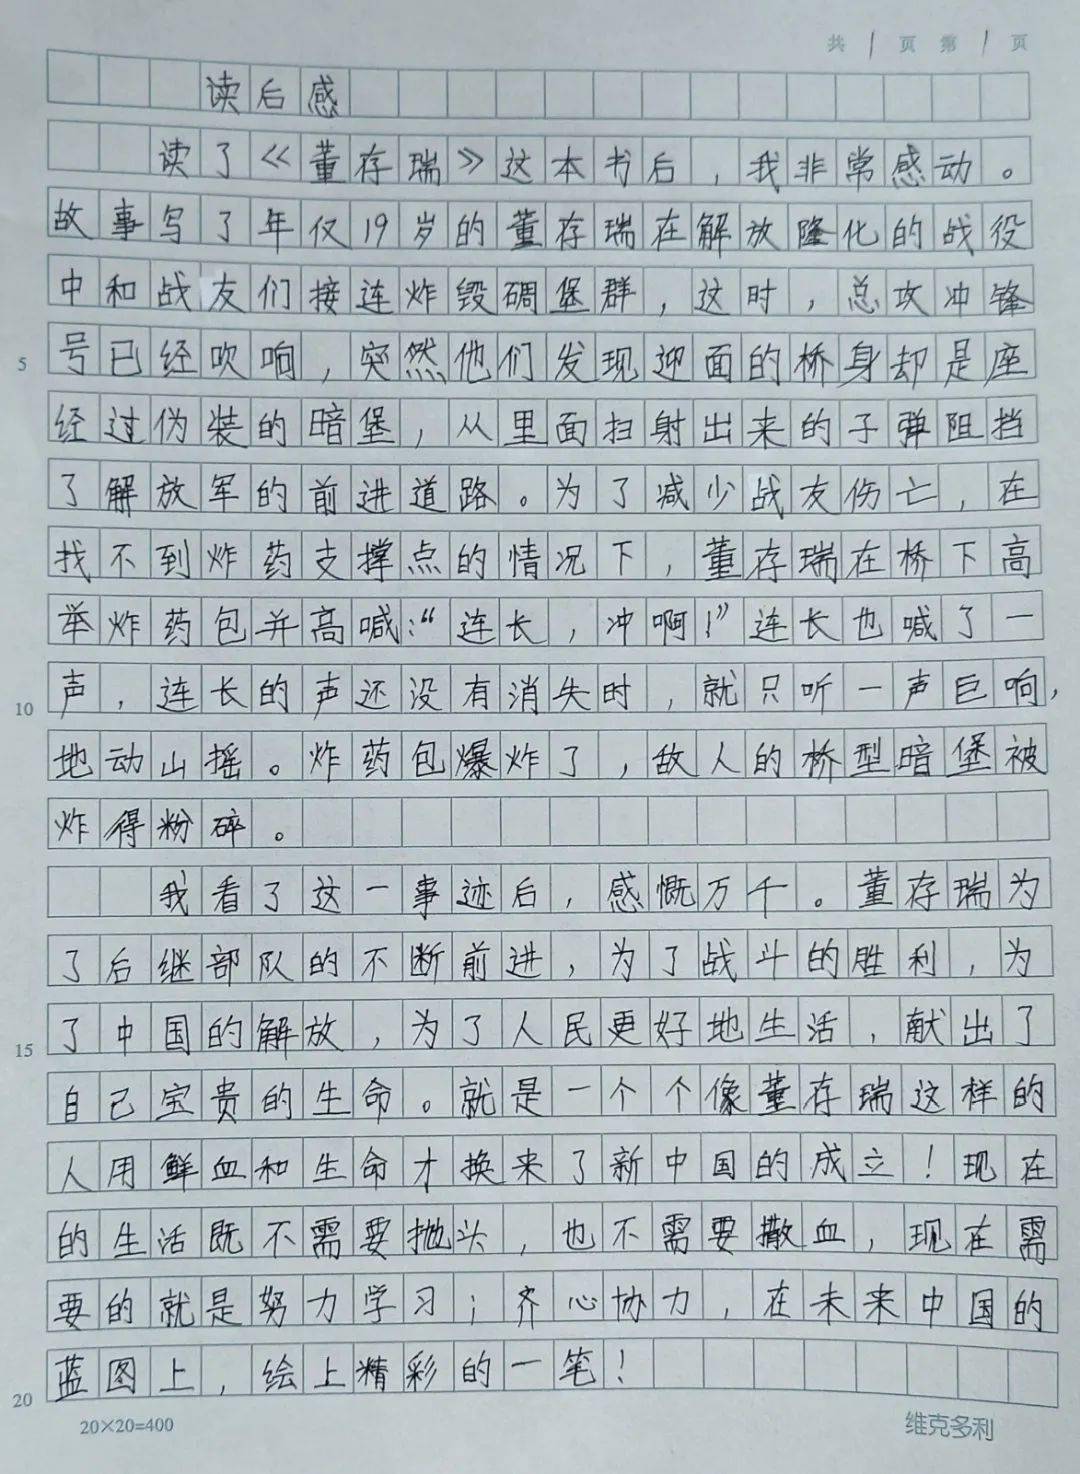 共 1 页 第 1 页
读后感
读了《董存瑞》这本书后，我非常感动。
故事写了年仅19岁的董存瑞在解放隆化的战役
中和战友们接连炸毁碉堡群，这时，总攻冲锋
5 号已经吹响，突然他们发现迎面的桥身却是座
经过伪装的暗堡，从里面扫射出来的子弹阻挡
了解放军的前进道路。为了减少战友伤亡，在
找不到炸药支撑点的情况下，董存瑞在桥下高
举炸药包并高喊：“连长，冲啊！”连长也喊了一
声，连长的声还没有消失时，就只听一声巨响，
10
地动山摇。炸药包爆炸了，敌人的桥型暗堡被
炸得粉碎。
我看了这一事迹后，感慨万千。董存瑞为
了后继部队的不断前进，为了战斗的胜利，为
15 了中国的解放，为了人民更好地生活，献出了
自己宝贵的生命。就是一个个像董存瑞这样的
人用鲜血和生命才换来了新中国的成立！现在
的生活既不需要抛头，也不需要撒血，现在需
要的就是努力学习；齐心协力，在未来中国的
20 蓝图上，绘上精彩的一笔！
20×20=400 维克多利